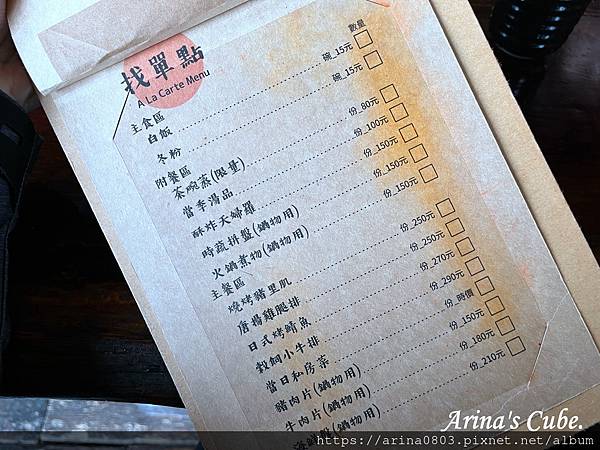 找單點
A La Carte Menu
數量
主食區
白飯 碗_15元
冬粉 碗_15元
附餐區
茶碗蒸(限量) 份_80元
當季湯品 份_100元
酥炸天婦羅 份_150元
時蔬拼盤(鍋物用) 份_150元
火鍋煮物(鍋物用) 份_150元
主餐區
燒烤豬里肌 份_250元
唐揚雞腿排 份_250元
日式烤鯖魚 份_270元
穀飼小牛排 份_290元
當日私房菜 份_時價
豬肉片(鍋物用) 份_150元
牛肉片(鍋物用) 份_180元
海鮮盤(鍋物用) 份_210元
Arina's Cube.
https://arina0803.pixnet.net/album